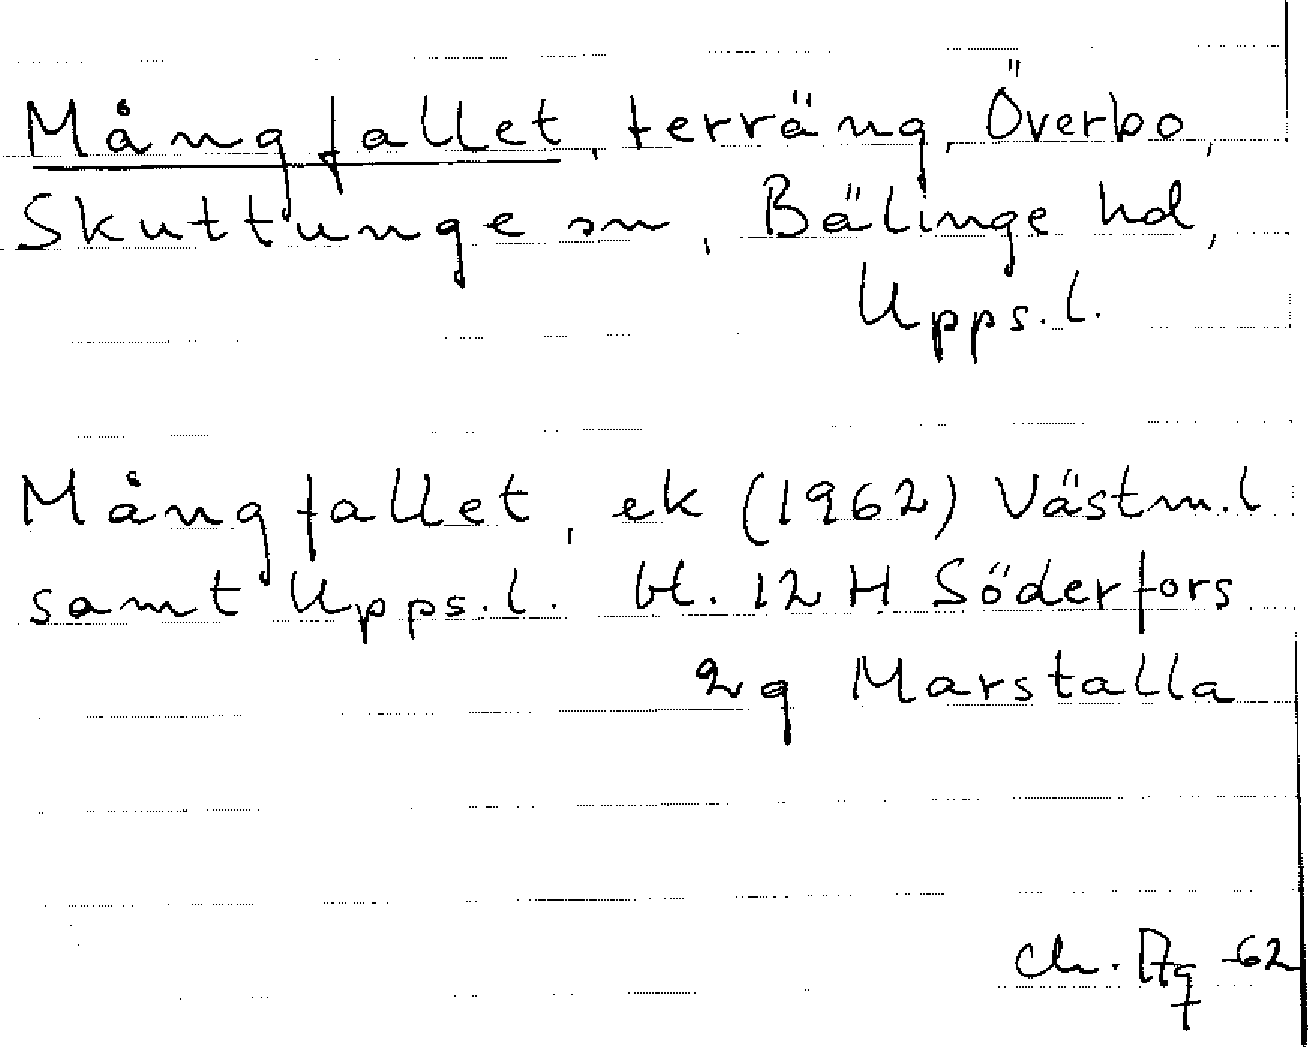 Mångfallet, terräng, Överbo,
Skuttunge sn, Bälinge hd,
Upps.l.
Mångfallet, ek (1962) Västm.l
samt Upps.l. bl. 12 H Söderfors
2g Marstalla
-62